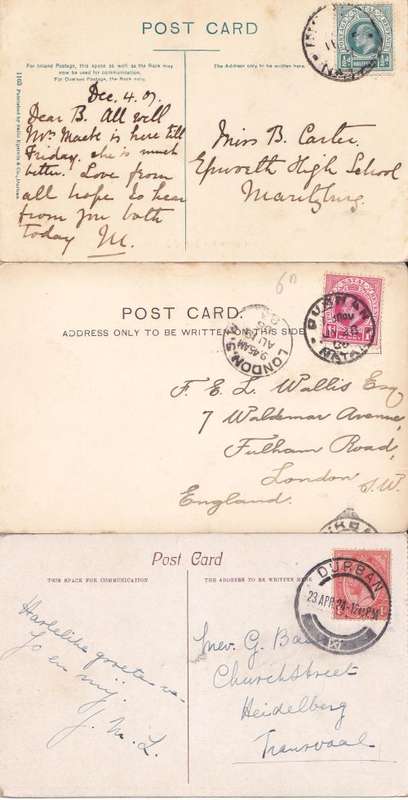 POST CARD
For Inland Postage, this space as well as the Back may
now be used for communication.
For Oversea Postage, the Back only.
The Address only to be written here.
Dec. 4. 07.
Dear B. All well
Mrs Mack is here till
Friday. She is much
better. Love from
all hope to hear
from you both
today M.
Miss B. Carter.
Epworth High School
Maritzburg
POST CARD.
ADDRESS ONLY TO BE WRITTEN ON THIS SIDE
LONDON, S.W.
9.45AM
DURBAN
NATAL
F. E. L. Wallis Esq
7 Waldemar Avenue,
Fulham Road,
London S.W.
England.
Post Card
THIS SPACE FOR COMMUNICATION
THE ADDRESS TO BE WRITTEN HERE
DURBAN
23 APR 24
Hartelike groete
Jo en my.
J. M. L.
Mev. G.
Church Street
Heidelberg
Transvaal